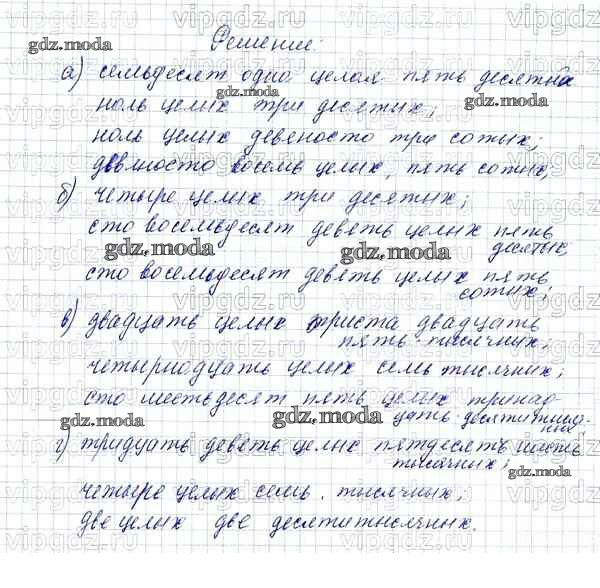 Решение:
а) семьдесят одна целая пять десятых
ноль целых три десятых;
ноль целых девяносто три сотых;
девяносто восемь целых, пять сотых,
б) четыре целых три десятых;
сто восемьдесят девять целых пять
десятых
сто восемьдесят девять целых пять
сотых;
в) двадцать целых триста двадцать
пять тысячных;
четырнадцать целых семь тысячных;
сто шестьдесят пять целых тринад-
цать десятитысяч-
ных
г) тридцать девять целых пятдесять шесть
тысячных;
четыре целых семь тысячных;
две целых две десятитысячных.
gdz.moda
gdz.moda
gdz.moda
gdz.moda
gdz.moda
gdz.moda
gdz.moda
gdz.moda
vipgdz.ru